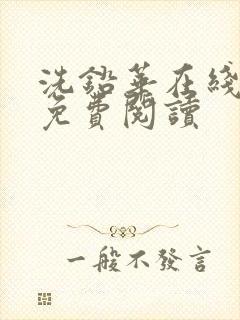 洗鉛華在綫
免費閱讀
一般不發言